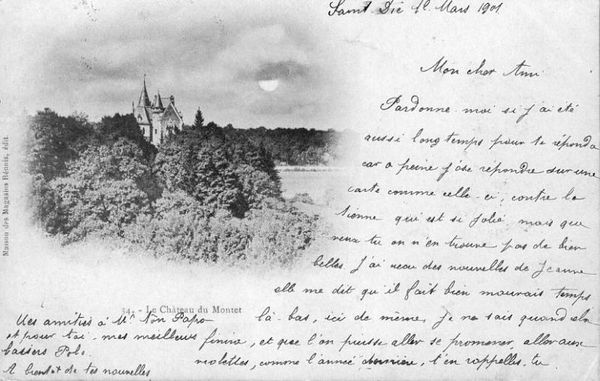 Saint Dié 1er Mars 1901
Mon cher Ami
Pardonne-moi si j'ai été
aussi longtemps pour te répondre
car à peine j'ose répondre sur une
carte comme celle-ci, contre la
tienne qui est si jolie mais que
veux tu on n'en trouve pas de bien
belles. J'ai reçu des nouvelles de Jeanne
elle me dit qu'il fait bien mauvais temps
là-bas, ici de même, Je ne sais quand cela
finira, et que l'on puisse aller se promener, aller aux
violettes, comme l'année dernière, t'en rappelles-tu
Mes amitiés à Mr Ton Papa
et pour toi, mes meilleurs
baisers
A bientôt de tes nouvelles
34. - Le Château du Montet
Maison des Magasins Réunis, édit.